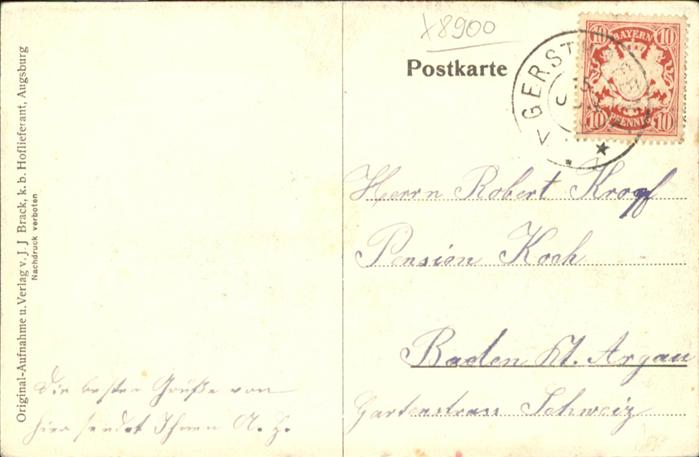 x8900
Postkarte
BAYERN
10 10
10 PFENNIG 10
GERST
Original-Aufnahme u. Verlag v. J. J. Brack, k. b. Hoflieferant, Augsburg
Nachdruck verboten
Herrn Robert Kropf
Pension Koch
Baden Kt. Argau
Gartenstrass Schweiz
Die besten Grüße von
hier sendet Ihnen A. Z.